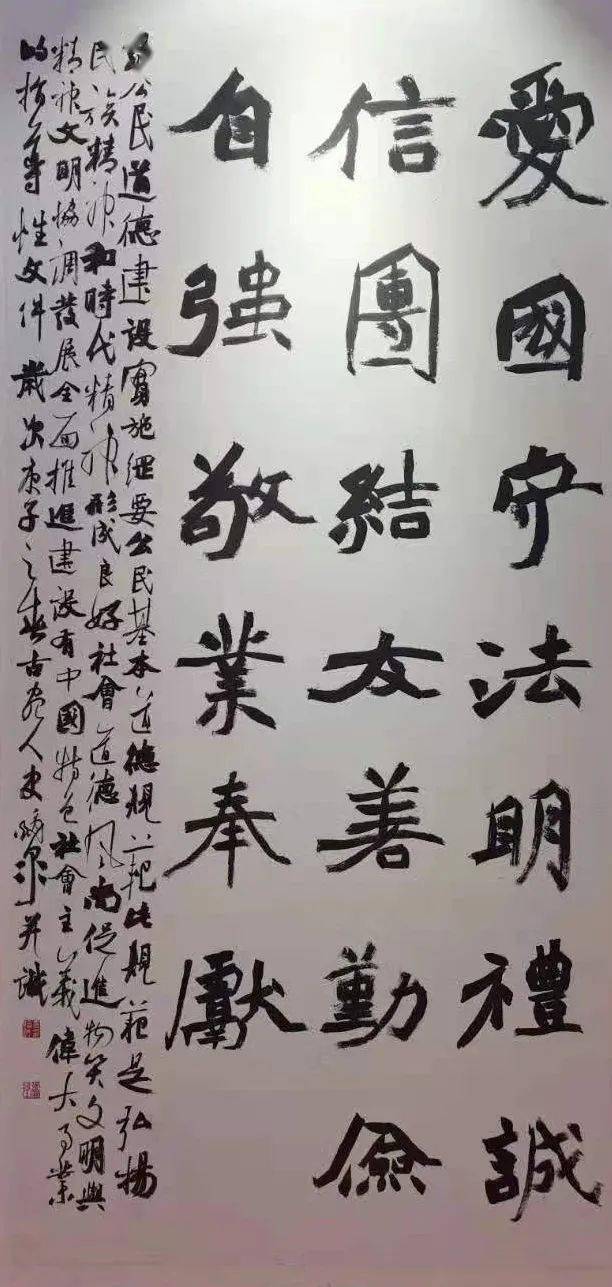 愛國守法明禮誠
信團結友善勤儉
自強敬業奉獻
公民道德建設實施綱要公民基本道德規範此規範是弘揚
民族精神和時代精神形成良好社會道德風尚促進物質文明與
精神文明協調發展全面推進建設有中國特色社會主義偉大事業
的指導性文件歲次庚子之春古
人史
並識